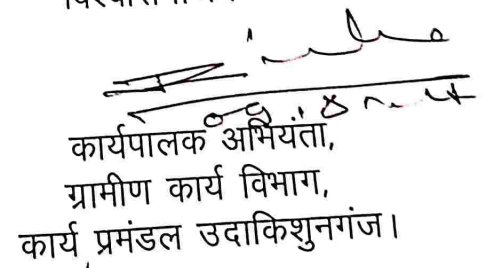 कार्यपालक अभियंता,
ग्रामीण कार्य विभाग,
कार्य प्रमंडल उदाकिशुनगंज।